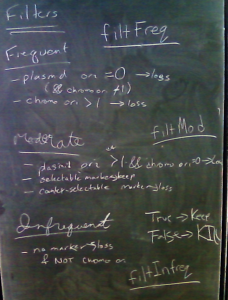 Filters
filtFreq
Frequent
- plasmid ori =0 → loss
(&& chromori ≠1)
- chromo ori >1 → loss
Moderate
filtMod
- plasmid ori >1 && chromo ori =0 → loss
- selectable marker keep
- counter-selectable marker loss
Infrequent
True → Keep
False → KILL
- no marker loss
& NOT chromo ori
filtInfreq